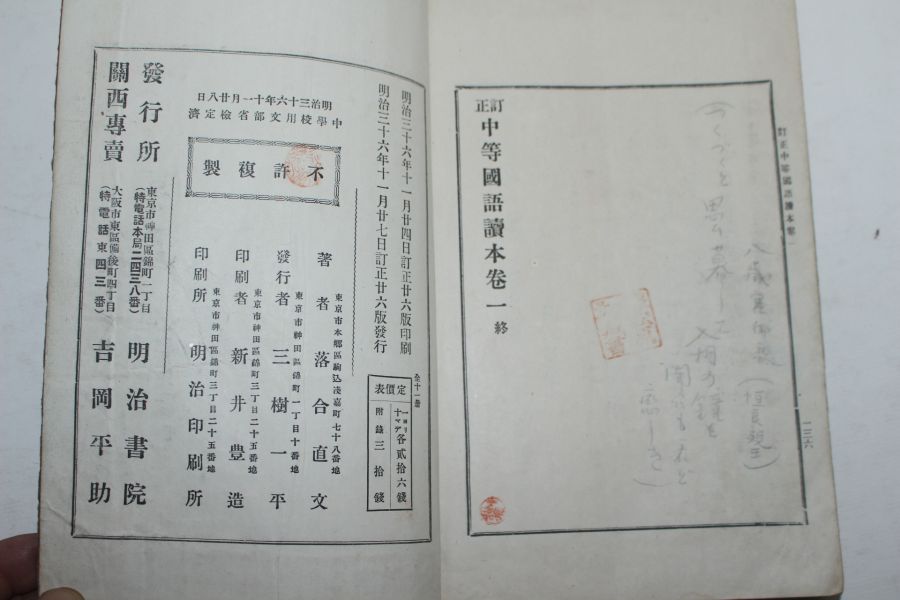 訂正中等國語讀本卷一
一三六
訂正中等國語讀本卷一 終
明治三十六年十一月廿四日訂正廿六版印刷
明治三十六年十一月廿七日訂正廿六版發行
全十一册
定價表
一ヨリ十マデ各貳拾六錢
附錄三拾錢
明治三十六年十一月廿八日
中學校用文部省檢定濟
不許複製
東京市本鄕區駒込淺嘉町七十八番地
著者 落合直文
東京市神田區錦町一丁目十番地
發行者 三樹一平
東京市神田區錦町三丁目二十五番地
印刷者 新井豊造
東京市神田區錦町三丁目二十五番地
印刷所 明治印刷所
發行所
東京市神田區錦町一丁目
(特電話本局二四三八番)
明治書院
關西專賣
大阪市東區備後町四丁目
(特電話東四三番)
吉岡平助